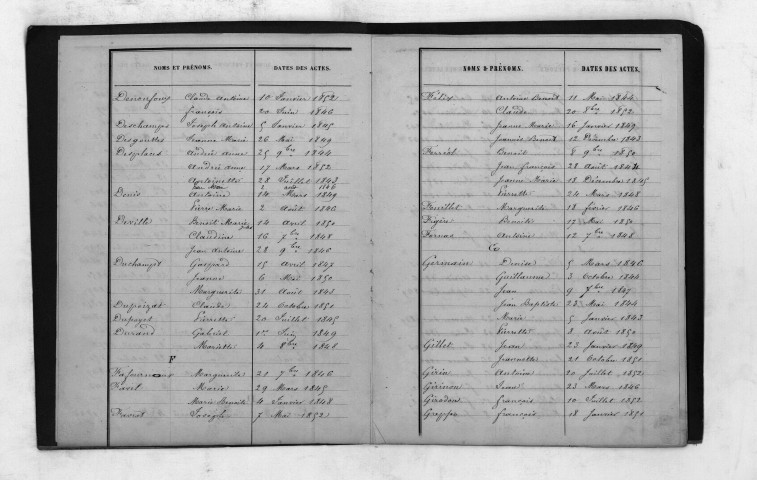 NOMS ET PRÉNOMS. DATES DES ACTES.
Claude Antoine 10 Janvier 1852
François 20 Juin 1846
Deschamps Joseph Antoine 5 Janvier 1845
Desgouttes Jeanne Marie 26 Mai 1849
Desplans Andrée Anne 25 9bre 1844
Andrée Anne 17 Mars 1852
Antoinette 28 Juillet 1843
Jean Marie 2 août 1846
Denis Antoine 14 Mars 1849
Pierre Marie 2 Août 1846
Deville Benoit Marie 14 Avril 1850
Claudine 16 7bre 1848
Jean Antoine 28 9bre 1846
Duchampt Gaspard 15 Avril 1847
Jeanne 6 Mai 1850
Marguerite 31 Août 1843
Dupoizat Claude 24 Octobre 1850
Dupoyet Pierrette 20 Juillet 1845
Durand Gabriel 1er Juin 1849
Mariette 4 8bre 1848
F
Marguerite 21 7bre 1846
Favel Marie 29 Mars 1845
Marie Benoite 4 Janvier 1848
Favrot Joseph 7 Mai 1852
NOMS & PRÉNOMS. DATES DES ACTES.
Félix Antoine Benoit 11 Mai 1844
Claude 20 8bre 1852
Jeanne Marie 16 Janvier 1849
Jeannie Benoit 12 Décembre 1843
Benoit 8 9bre 1850
Jean François 28 Août 1844
Jeanne Marie 18 Décembre 1845
Pierrette 24 Mars 1848
Feuillet Marguerite 18 février 1846
Figère Benoite 17 Mai 1850
Antoine 12 7bre 1848
G
Germain Denise 5 Mars 1846
Guillaume 3 Octobre 1844
Jean 9 7bre 1847
Jean Baptiste 23 Mai 1844
Marie 5 Janvier 1843
Pierrette 8 Août 1850
Gillet Jean 23 Janvier 1849
Jeannette 21 Octobre 1850
Girin Antoine 20 Juillet 1852
Girinon 23 Mars 1846
Girodon François 10 Juillet 1852
Greppo François 18 Janvier 1850